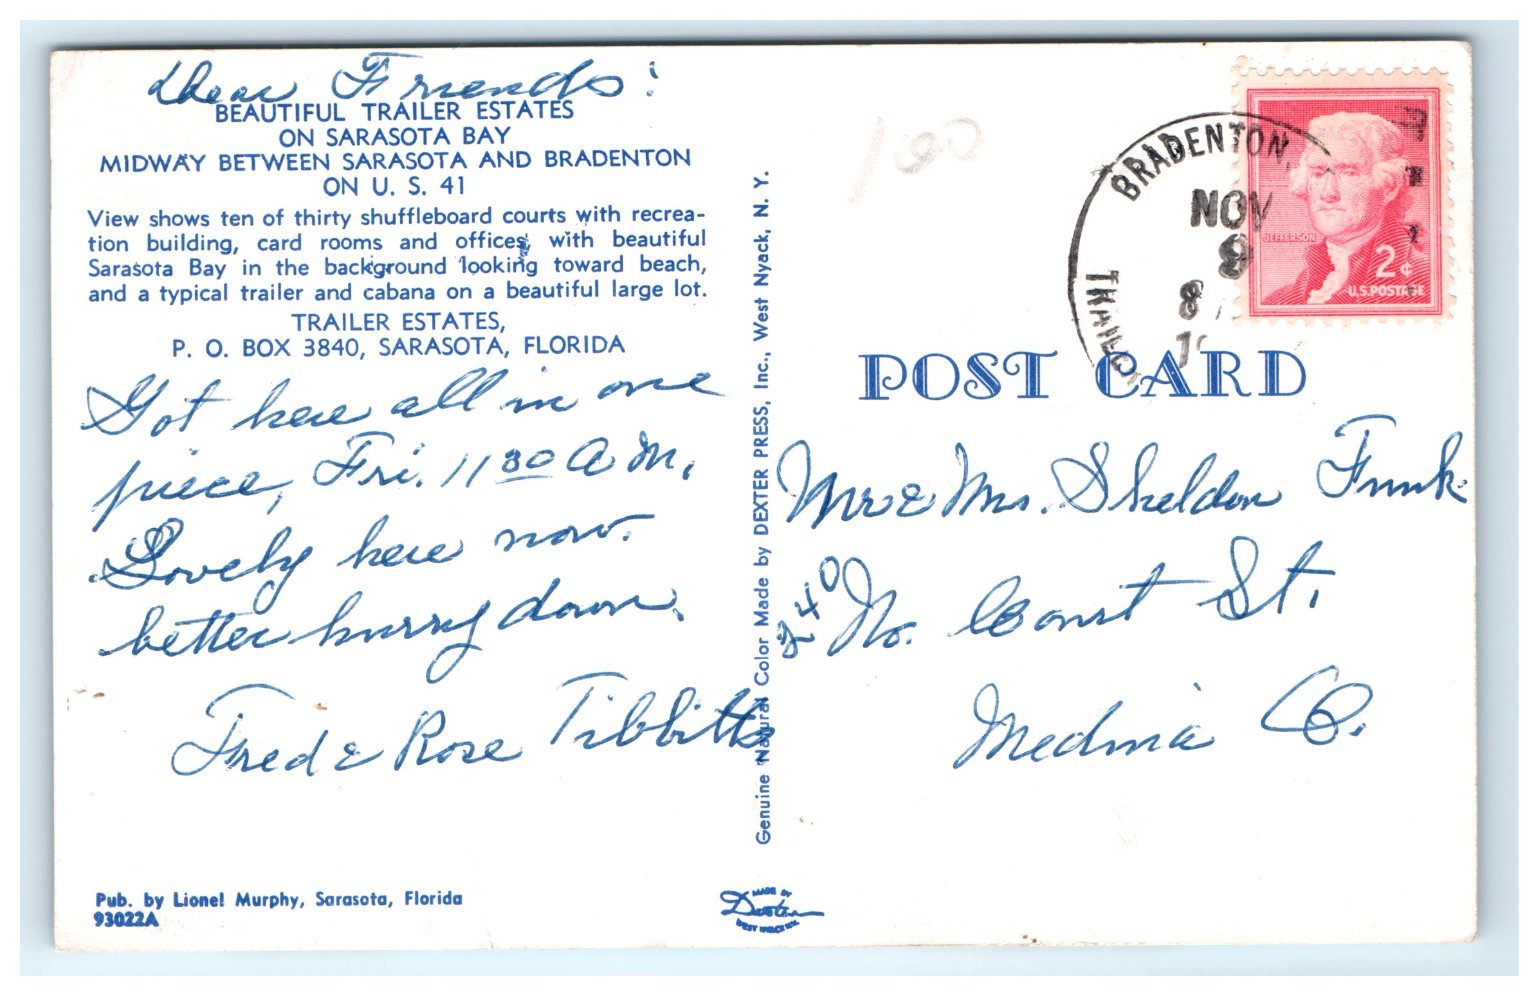 Dear Friends:
BEAUTIFUL TRAILER ESTATES
ON SARASOTA BAY
MIDWAY BETWEEN SARASOTA AND BRADENTON
ON U. S. 41
View shows ten of thirty shuffleboard courts with recrea-
tion building, card rooms and offices, with beautiful
Sarasota Bay in the background looking toward beach,
and a typical trailer and cabana on a beautiful large lot.
TRAILER ESTATES,
P. O. BOX 3840, SARASOTA, FLORIDA
Got here all in one
piece, Fri. 11 30 A M.
Lovely here now.
better hurry down.
Fred & Rose Tibbitts
Pub. by Lionel Murphy, Sarasota, Florida
93022A
Genuine Natural Color Made by DEXTER PRESS, Inc., West Nyack, N. Y.
MADE BY
Dexter
WEST NYACK N.Y.
100
BRADENTON,
NOV
9
8
JEFFERSON
2¢
U.S. POSTAGE
POST CARD
Mr & Mrs. Sheldon Funk
240 No. Court St.
Medina O.